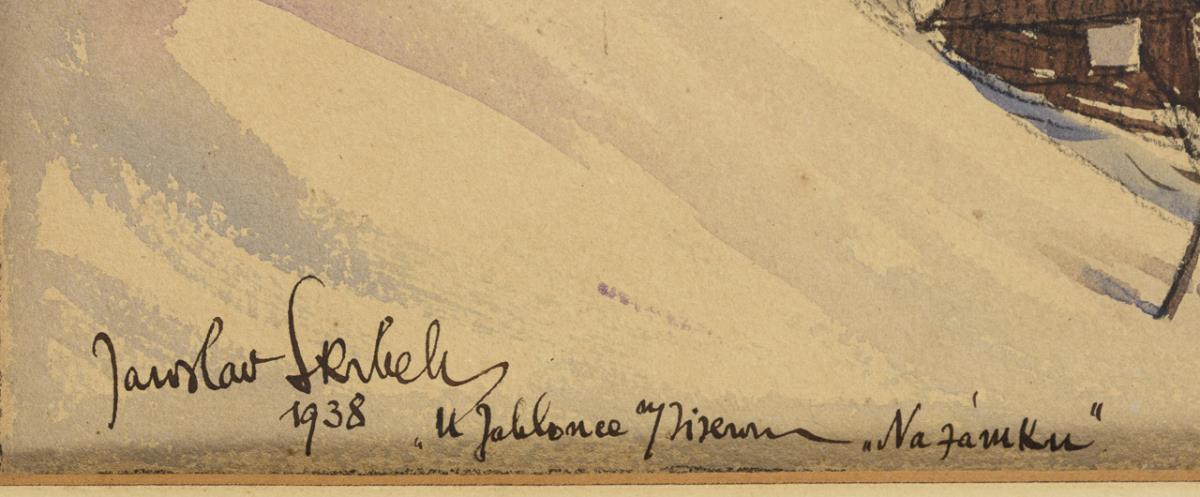 Jaroslav Skrbek
1938 „U Jablonce n/Jizerou „Na zámku"